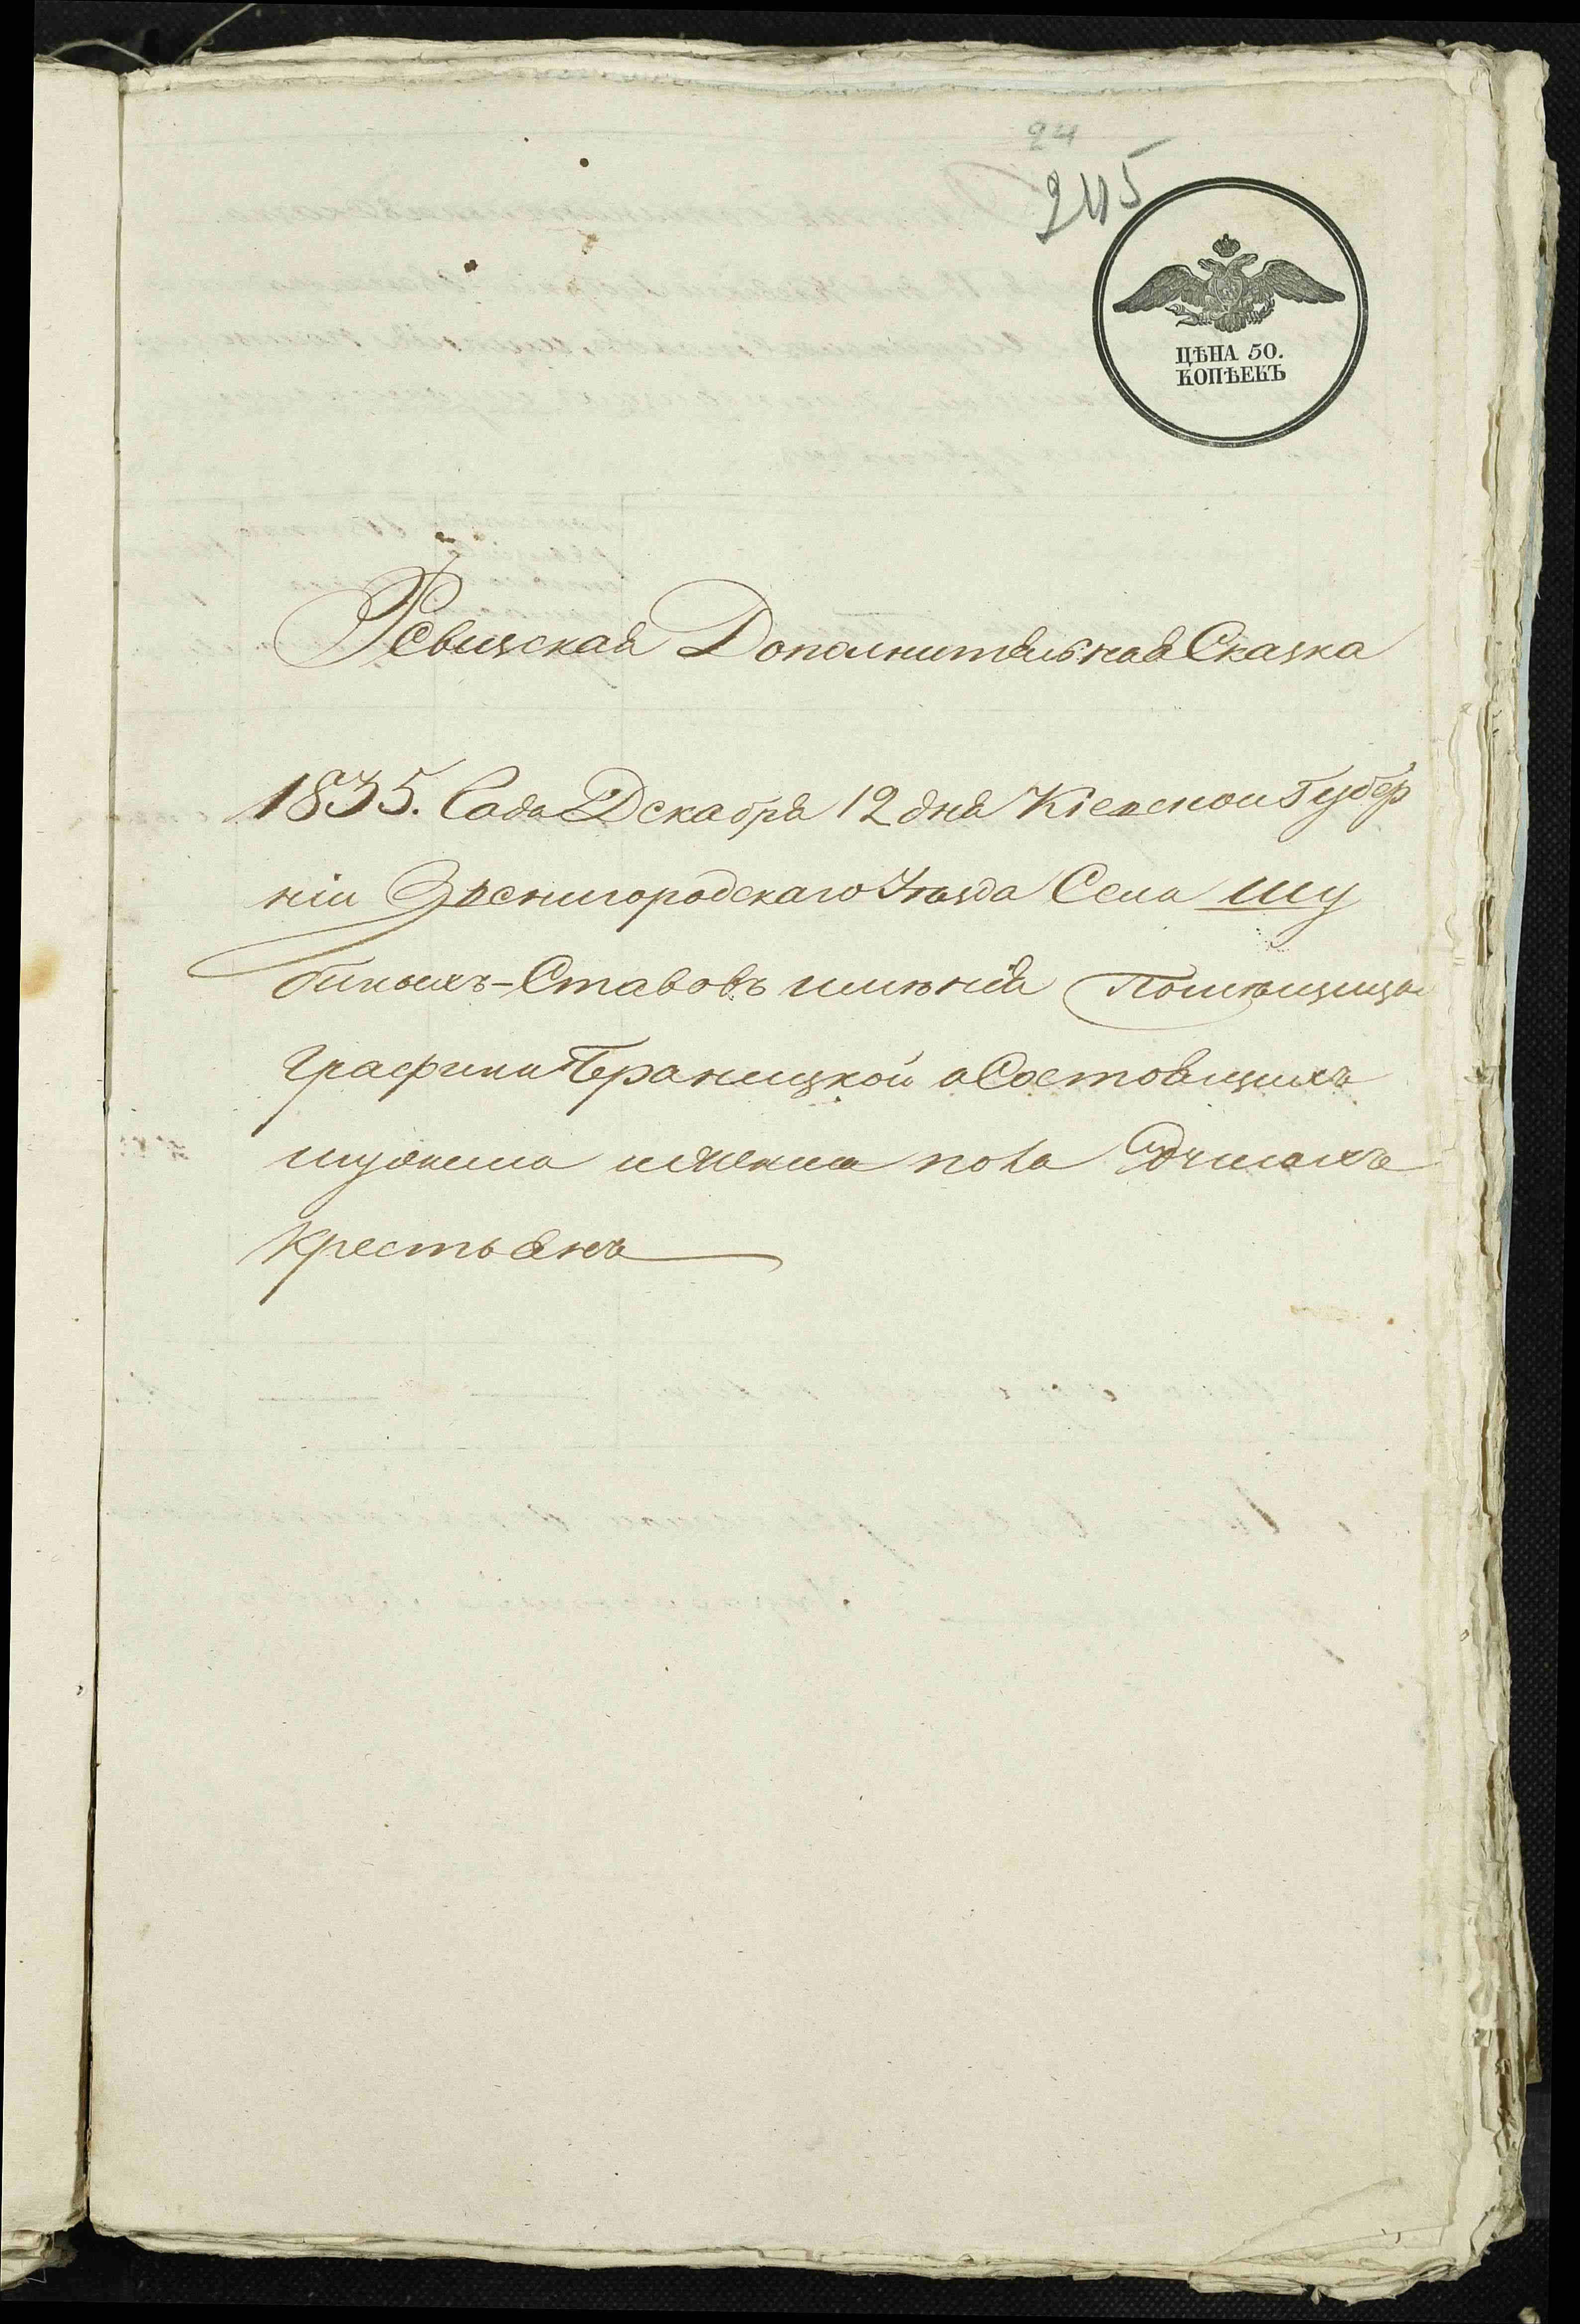 24
245
ЦѢНА 50.
КОПѢЕКЪ
Ревизская Дополнительная Сказка
1835. Года Декабря 12 дня Кіевской Губер
ніи Звенигородскаго Уѣзда Села Шу
биныхъ-Ставовъ имѣнія Помѣщицы
Графини Браницкой о Состоящихъ
мужеска и женска пола душахъ
Крестьянъ